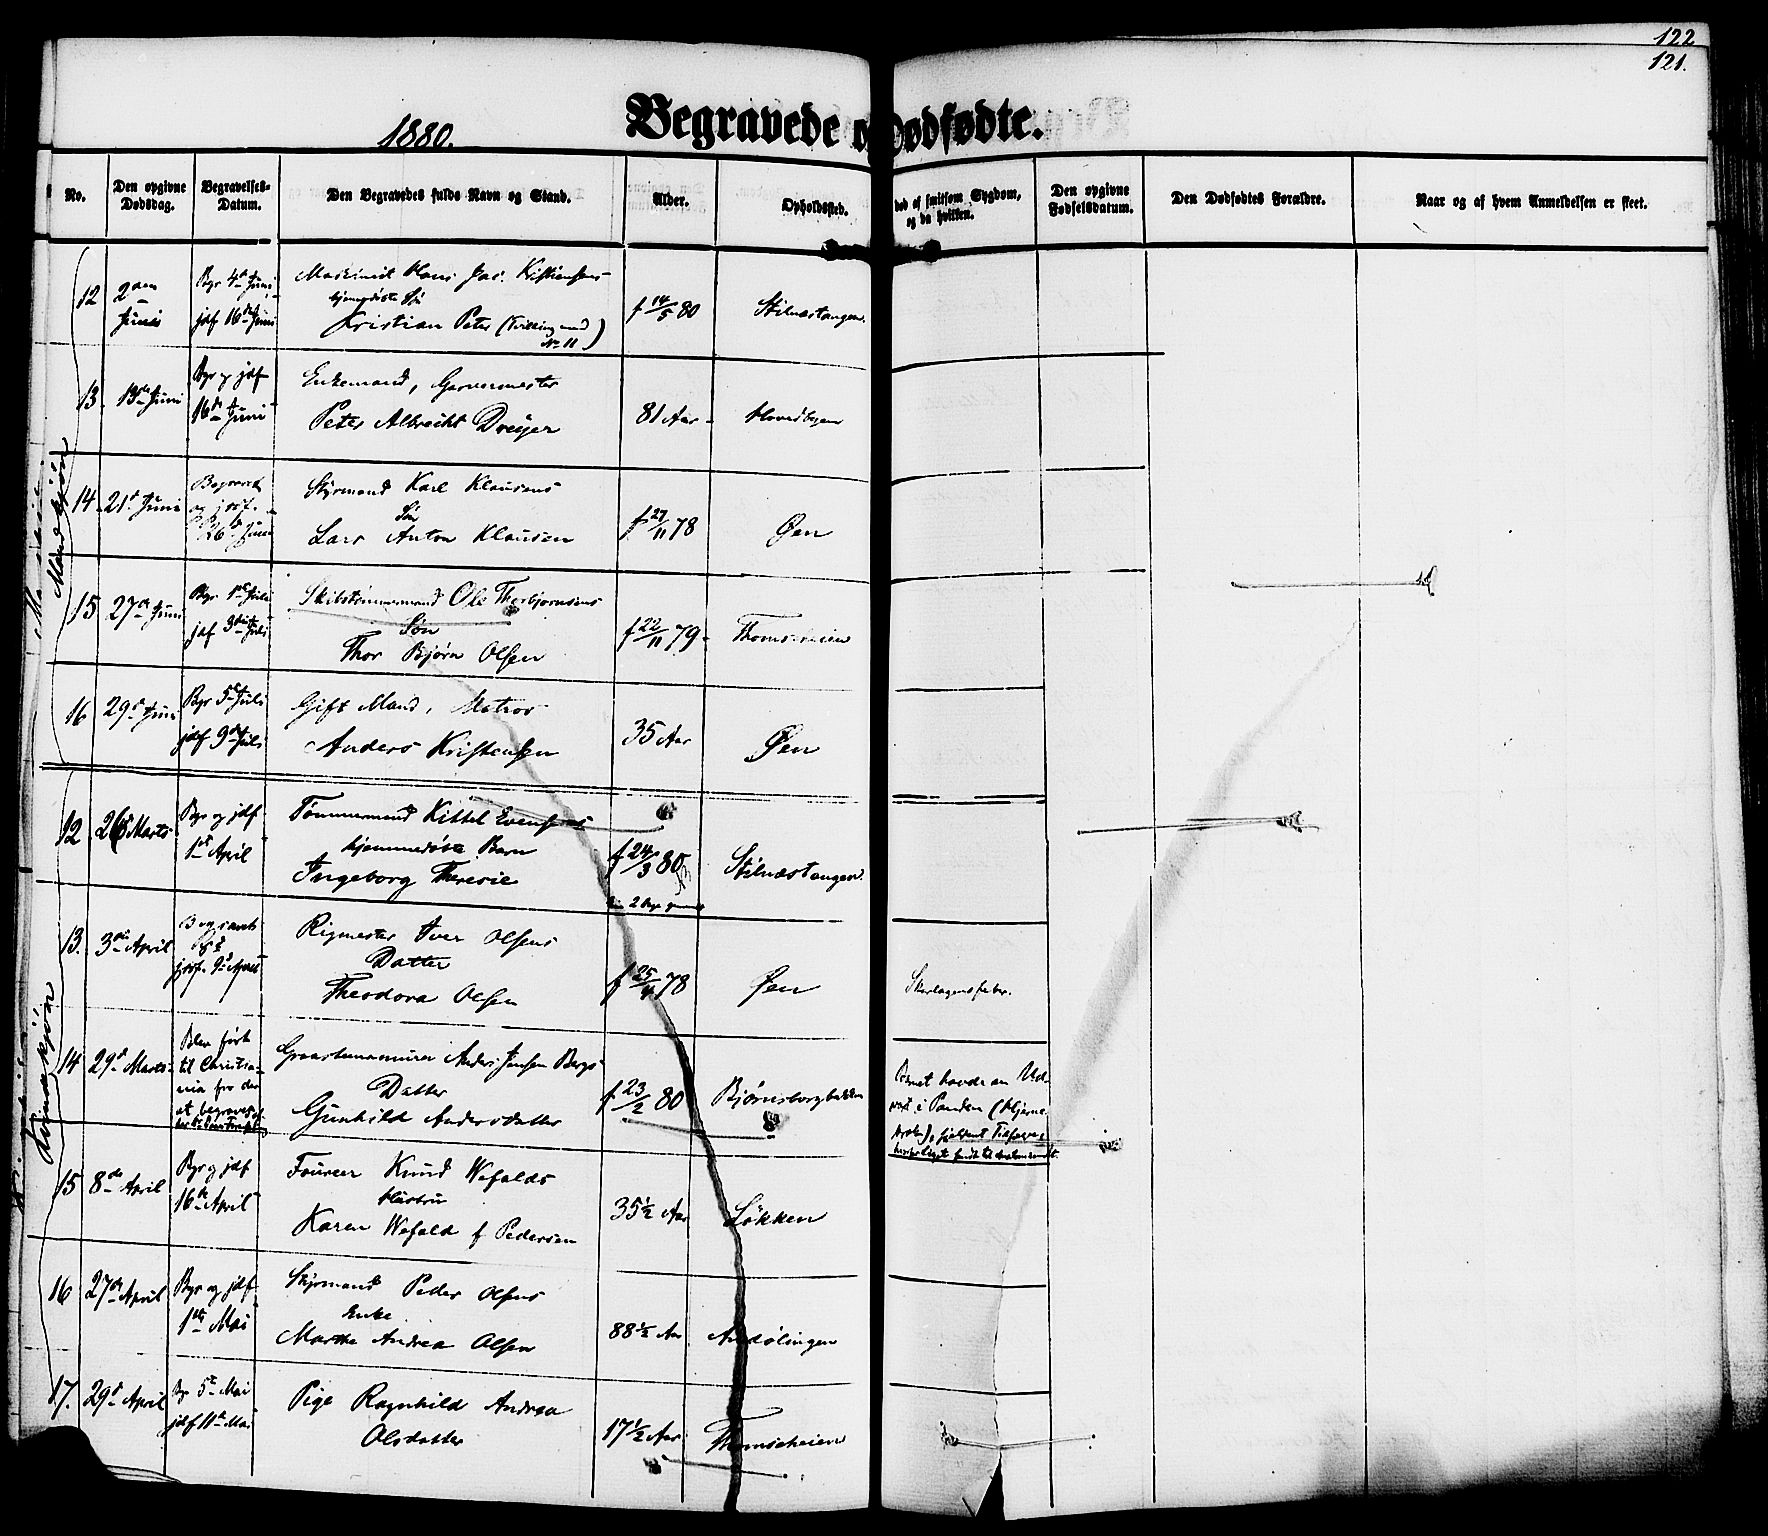 122
121.
1880.
Begravede o Dødfødte.
No.
Den opgivne Dødsdag.
Begravelses-Datum.
Den Begravedes fulde Navn og Stand.
Alder.
Opholdssted.
ved af smitsom Sygdom, og da hvilken.
Den opgivne Fødselsdatum.
Den Dødfødtes Forældre.
Naar og af hvem Anmeldelsen er skeet.
Mandkjøn
12
2den Juni
Bgr 4de Juni
jdf 16de Juni
Maskinist Hans Jac. Kristiansens
hjemmedøbte Søn
Kristian Peter (Tvilling med
No 11)
f 14/5 80
Stilnæstangen.
13
13de Juni
Bgr og jdf
16de Juni
Enkemand, Garvermester
Peter Albrecht Dreyer
81 Aar
Hovedbyen
14
21de Juni
Begravet
og jordf.
26de Juni
Styrmand Karl Klausens
Søn
Lars Anton Klausen
f 27/11 78
Øen
15
27de Juni
Bgr 1ste Juli
jdf 3die Juli
Skibstømmermand Ole Thorbjørnsens
Søn
Thor Bjørn Olsen
f 22/11 79
Thomesheien
16
29de Juni
Bgr 5te Juli
jdf 9de Juli
Gift Mand, Matros
Anders Kristensen
35 Aar
Øen
Kvindekjøn
12
26de Marts
Bgr og jdf
1ste April
Tømmermand Kittel Evensens
hjemmedøbte Barn
Ingeborg Theresie
f 24/3 80
2 Dage gammel
Stilnæstangen.
13.
3die April
Begravet
jordf. 9de April
Rigmester Iver Olsens
Datter
Theodora Olsen
f 25/4 78
Øen
Skarlagensfeber.
14
29de Marts
Blev ført
til Christia-
nia for der
at begraves
Graastensmurer Anders Jensen Bergs
Datter
Gunhild Andersdatter
f 23/2 80
Bjørnsborgbakken
Barnet havde en Ud-
vext i Panden (Hjerne-
15
8de April
Bgr og jdf
16de April
Foureer Knud Wefalds
Hustru
Karen Wefald f Pedersen
35½ Aar
Løkken
16
27de April
Bgr og jdf
1ste Mai
Styrmand Peder Olsens
Enke
Marthe Andrea Olsen
88½ Aar
Aadølingen
17.
29de April
Bgr 5te Mai
jdf 11te Mai
Pige Ragnhild Andrea
Olsdatter
17½ Aar
Thomesheien